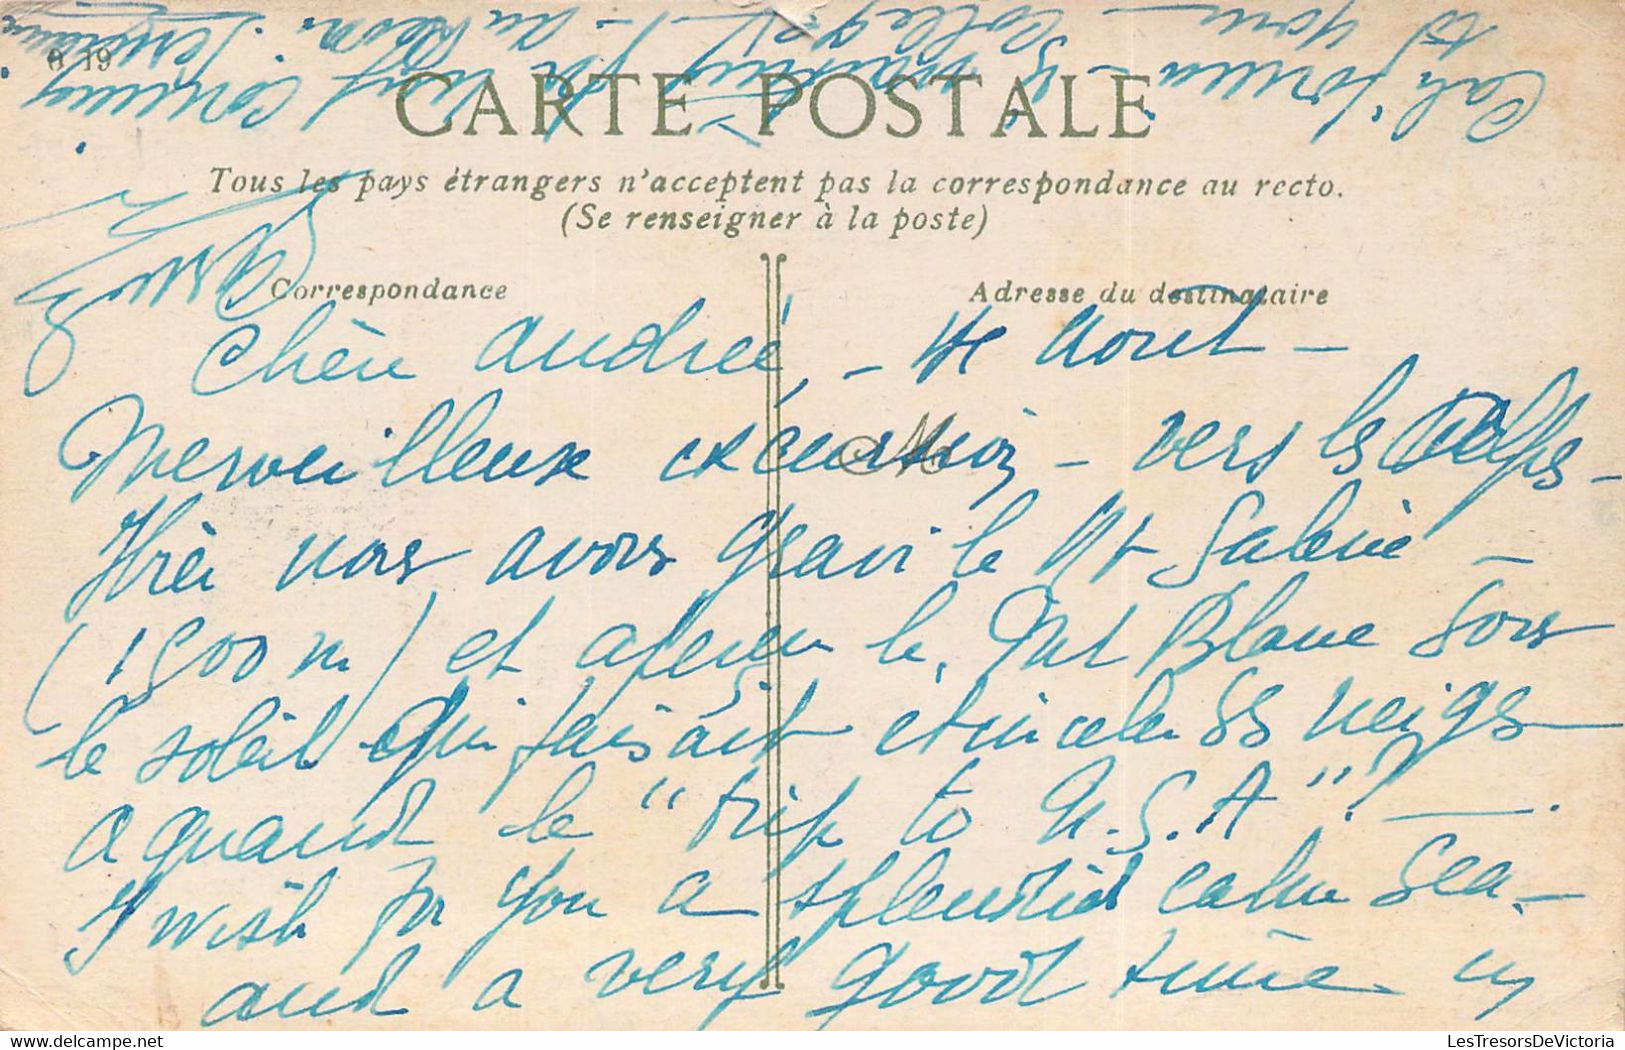 0 19
CARTE POSTALE
Tous les pays étrangers n'acceptent pas la correspondance au recto.
(Se renseigner à la poste)
Correspondance
Adresse du destinataire
Chère Andrée, - Août -
Merveilleuse excursion - vers les Alpes -
Hièr nous avons gravi le Mt Salève -
(1300 m) et aperçu le Mt Blanc sous
le soleil qui faisait étinceler ses neiges
a quand le "trip to U.S.A"? -
I wish for you a splendid calm sea -
and a very good time in
California -
to you